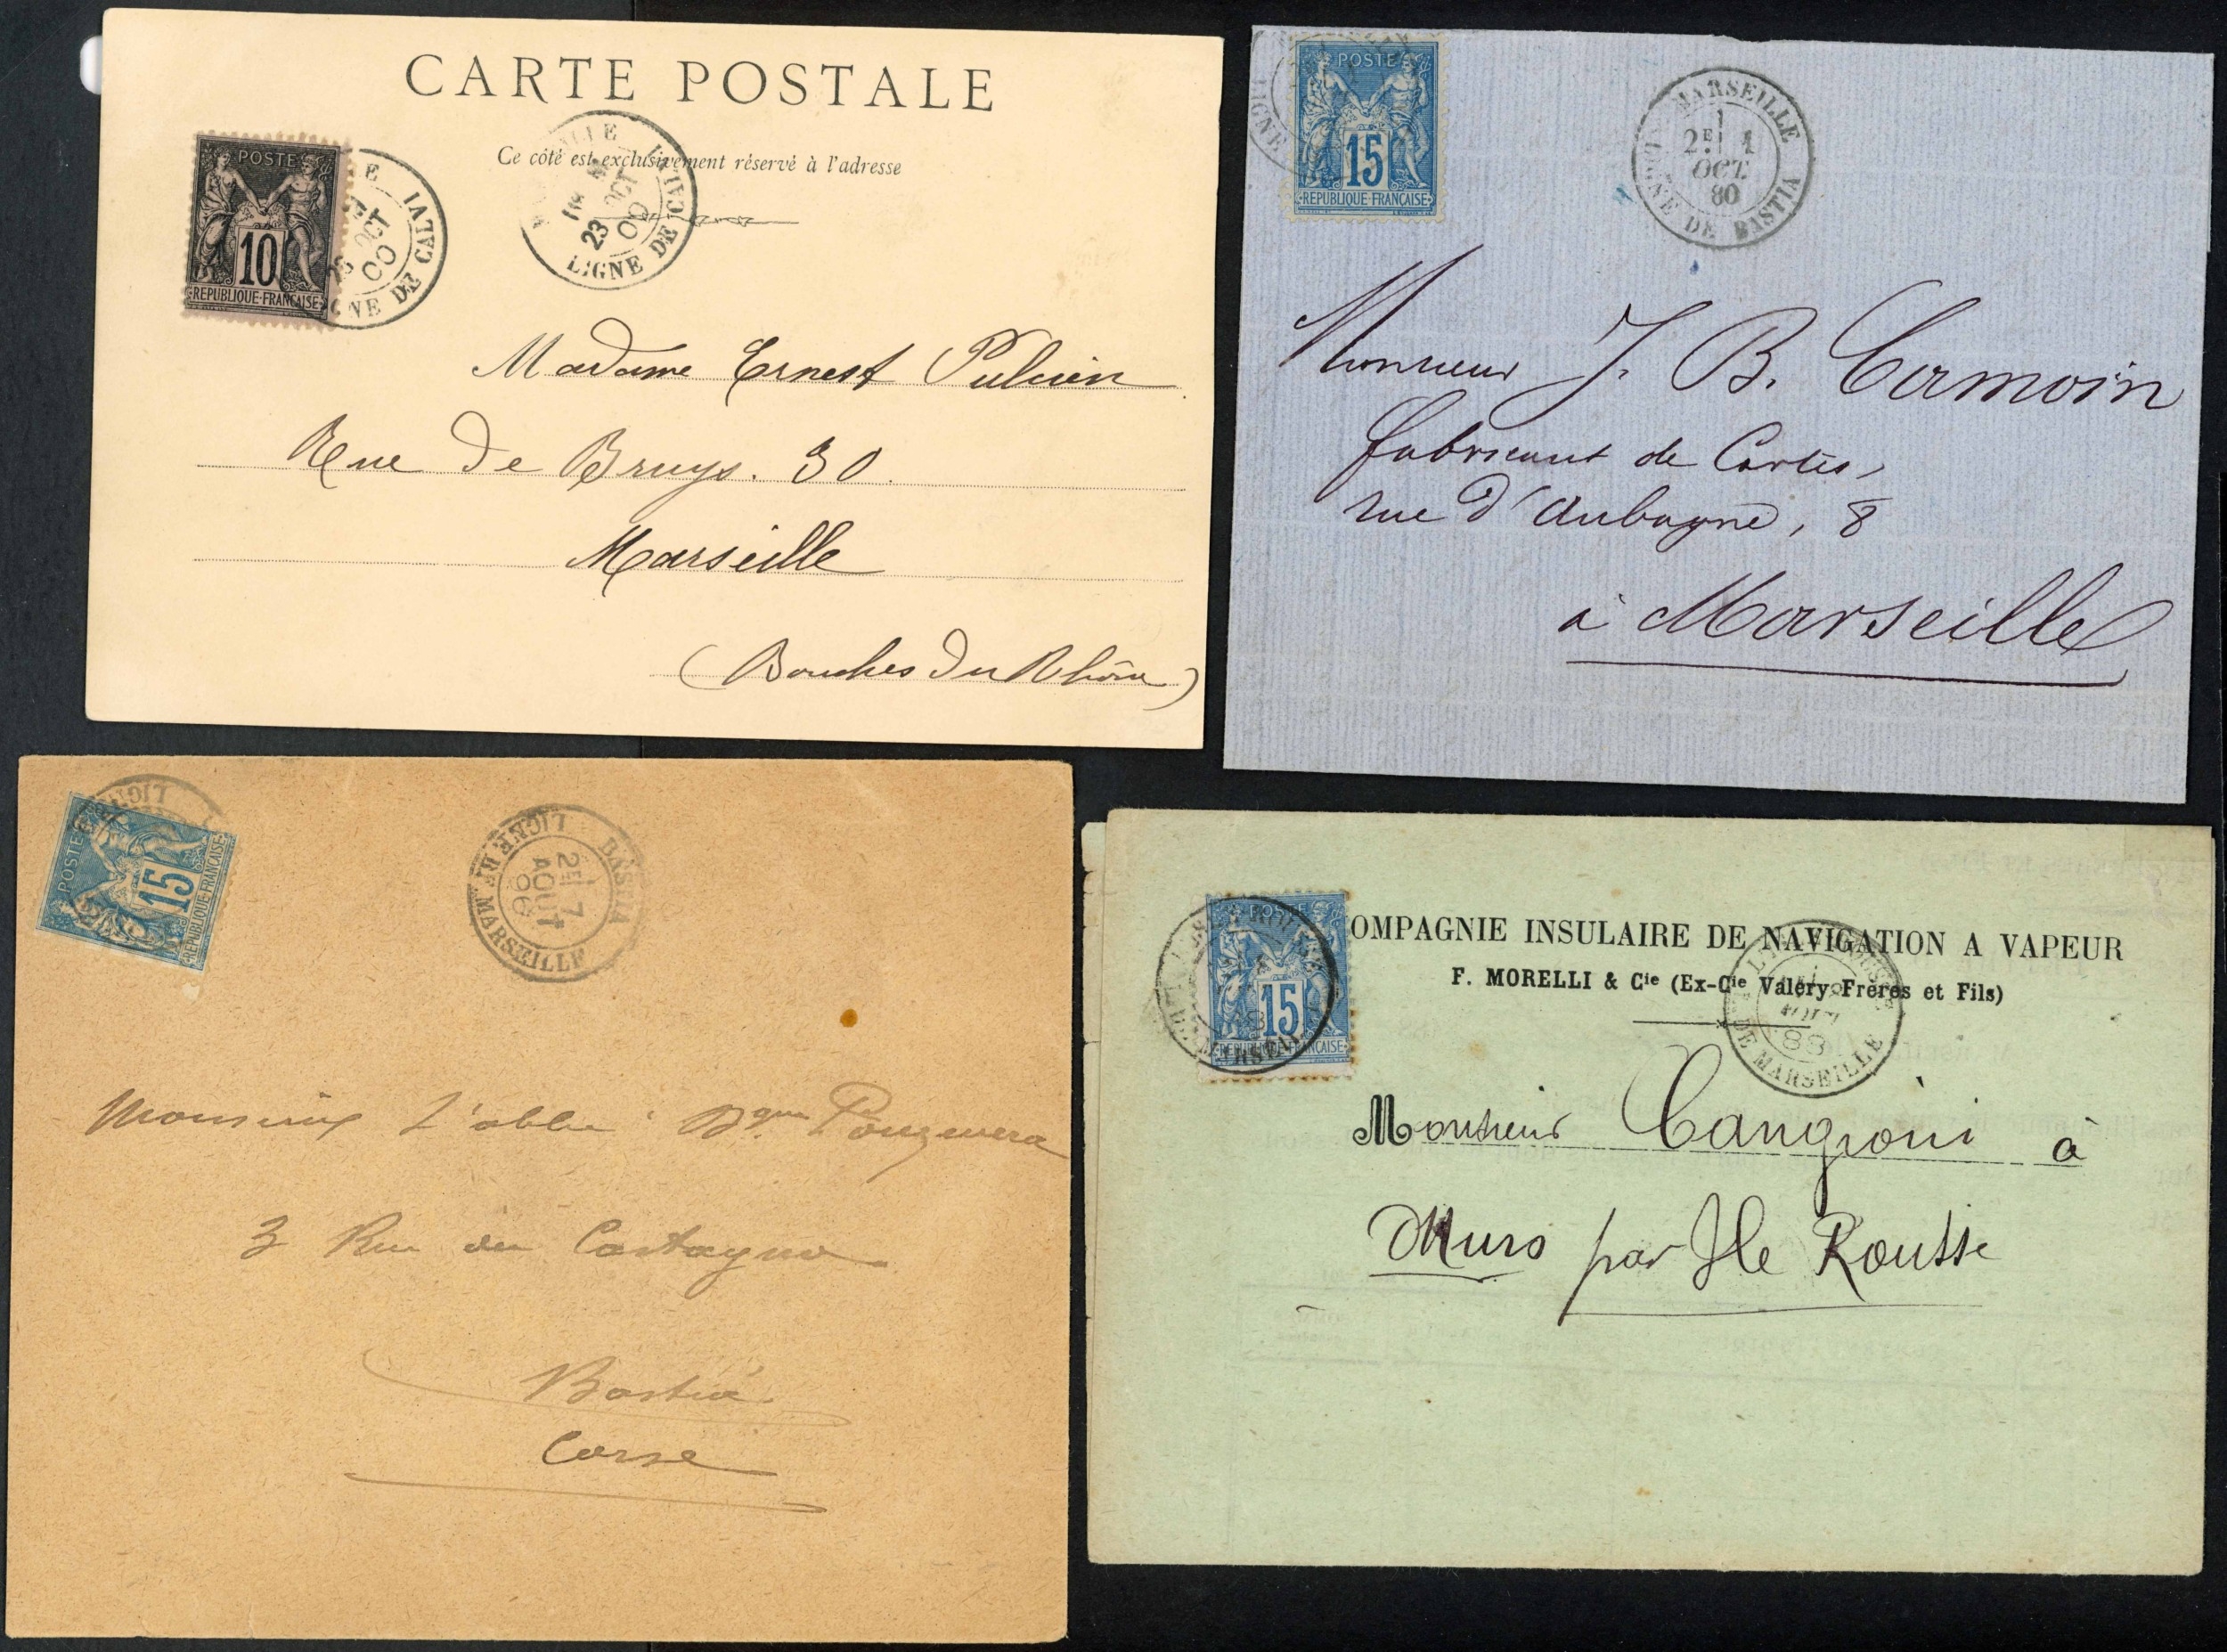 CARTE POSTALE
Ce côté est exclusivement réservé à l'adresse
POSTE
10
REPUBLIQUE FRANÇAISE
E
OCT
00
LIGNE DE CALVI
23 OCT
00
LIGNE DE CALVI
Madame Ernest
Rue de Bruys. 30.
Marseille
(Bouches du Rhône)
POSTE
15
REPUBLIQUE FRANÇAISE
LIGNE
MARSEILLE
2E 1
OCT.
80
LIGNE DE BASTIA
Monsieur J. B. Camoin
fabricant de Cartes,
rue d'Aubagne, 8
à Marseille
POSTE
15
REPUBLIQUE FRANÇAISE
LIGNE
BASTIA
2E 7
AOUT
LIGNE DE MARSEILLE
Monsieur l'abbé
3 Rue du Castagno
Bastia
Corse
POSTE
15
REPUBLIQUE FRANÇAISE
OMPAGNIE INSULAIRE DE NAVIGATION A VAPEUR
F. MORELLI & Cie (Ex-Cie Valéry Frères et Fils)
88
DE MARSEILLE
Monsieur Cangioni à
Muro par Ile Rousse